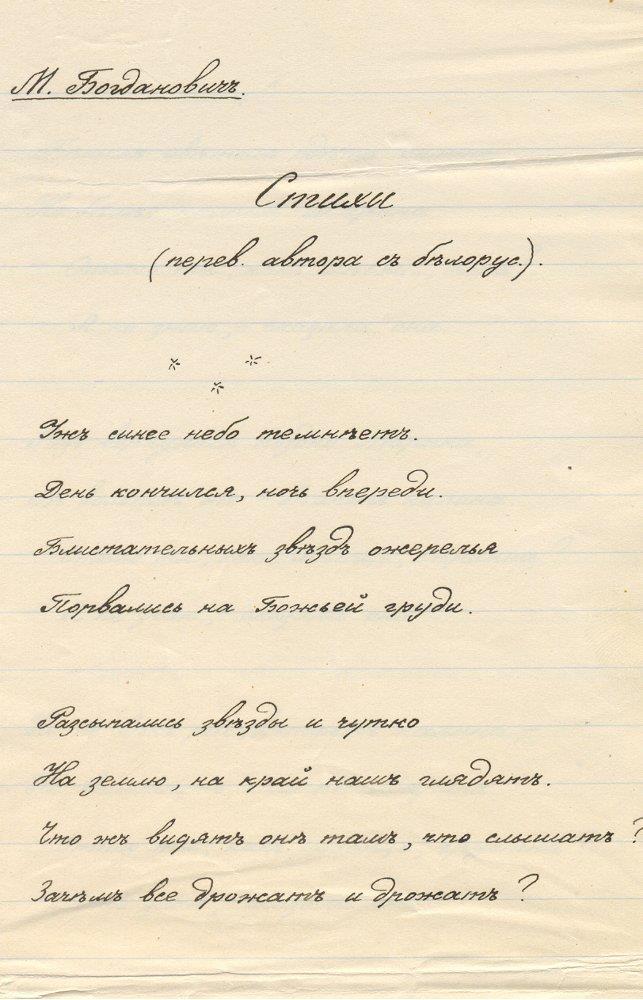 М. Богдановичъ.
Стихи
(перев. автора съ бѣлорус.).
* * *
Ужъ синее небо темнѣетъ.
День кончился, ночь впереди.
Блистательныхъ звѣздъ ожерелья
Порвались на Божьей груди.
Разсыпались звѣзды и чутко
На землю, на край нашъ глядятъ.
Что жъ видятъ онѣ тамъ, что слышатъ?
Зачѣмъ все дрожатъ и дрожатъ?